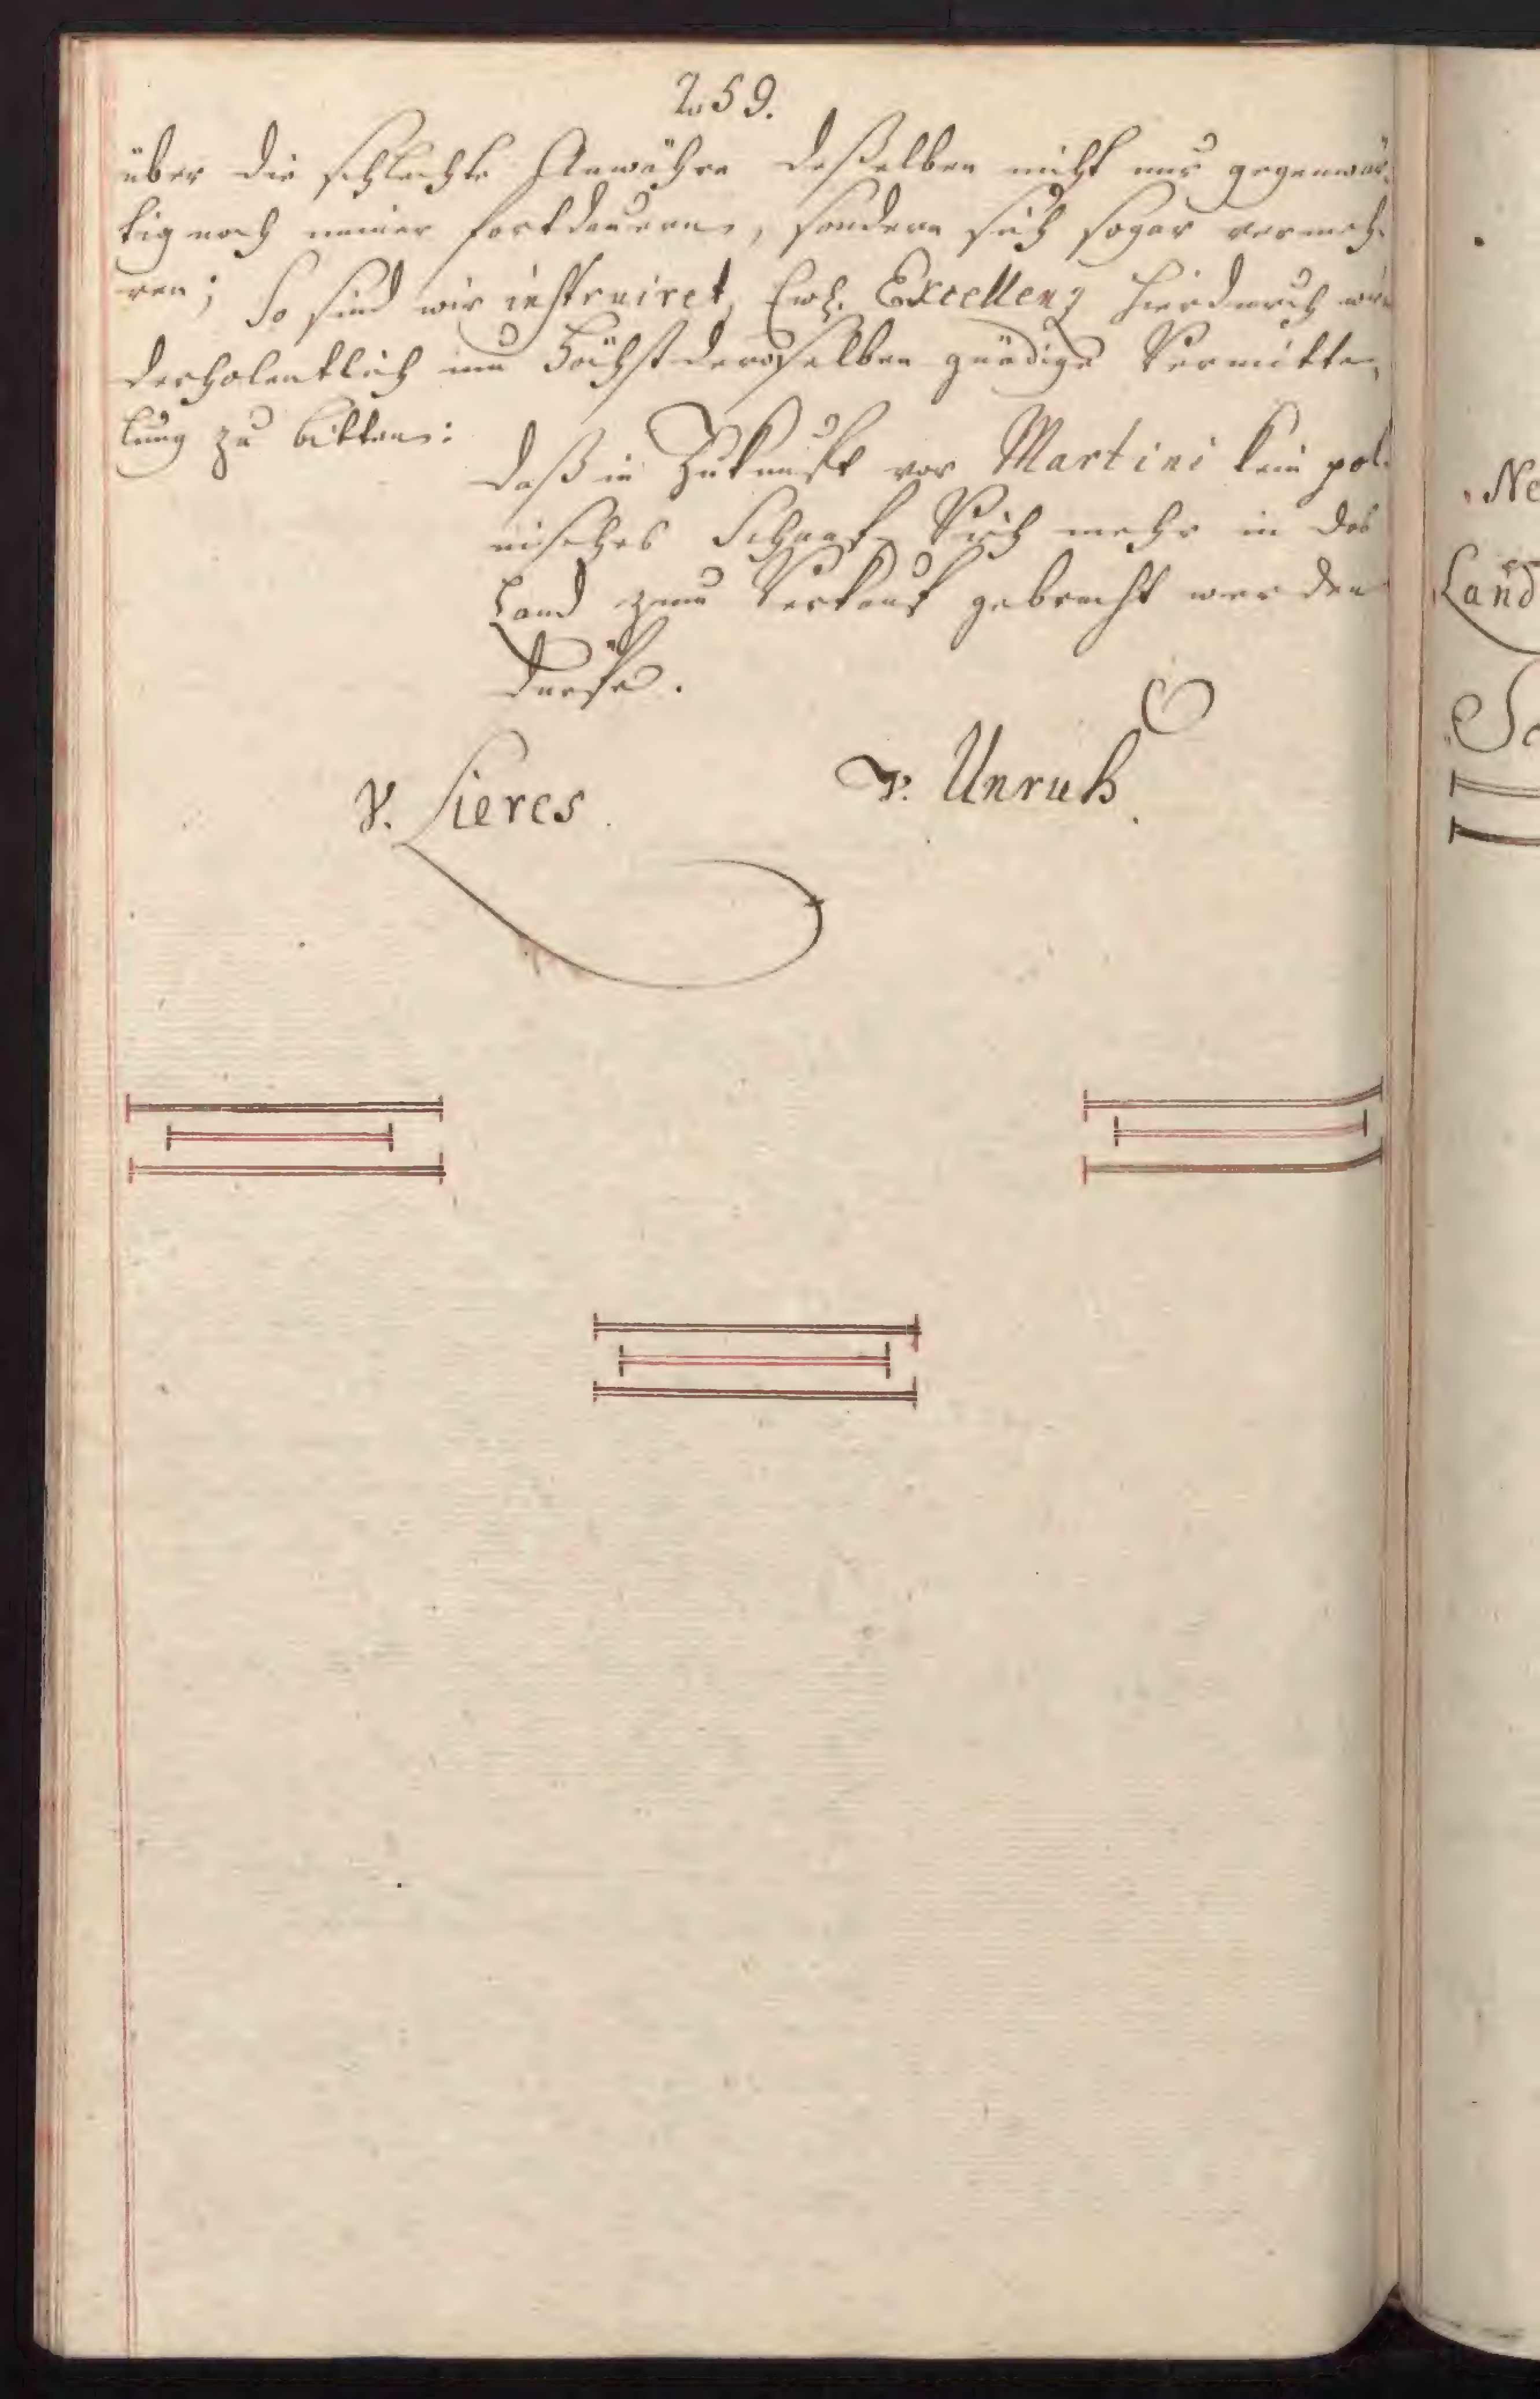 259.
über die schlechte Anwähre deßelben nicht nur gegenwär-
tig noch immer fortdauern, sondern sich sogar vermeh-
ren; So sind wir instruiret, Ew. Excellenz hierdurch wie-
derholentlich um Höchstderoselben gnädige Vermitte-
lung zu bitten:
daß in Zukunft vor Martini kein pol-
nisches Schaaf-Vieh mehr in das
Land zum Verkauf gebracht werden
dürfe.
v. Lieres.
v. Unruh.
Ne
Land